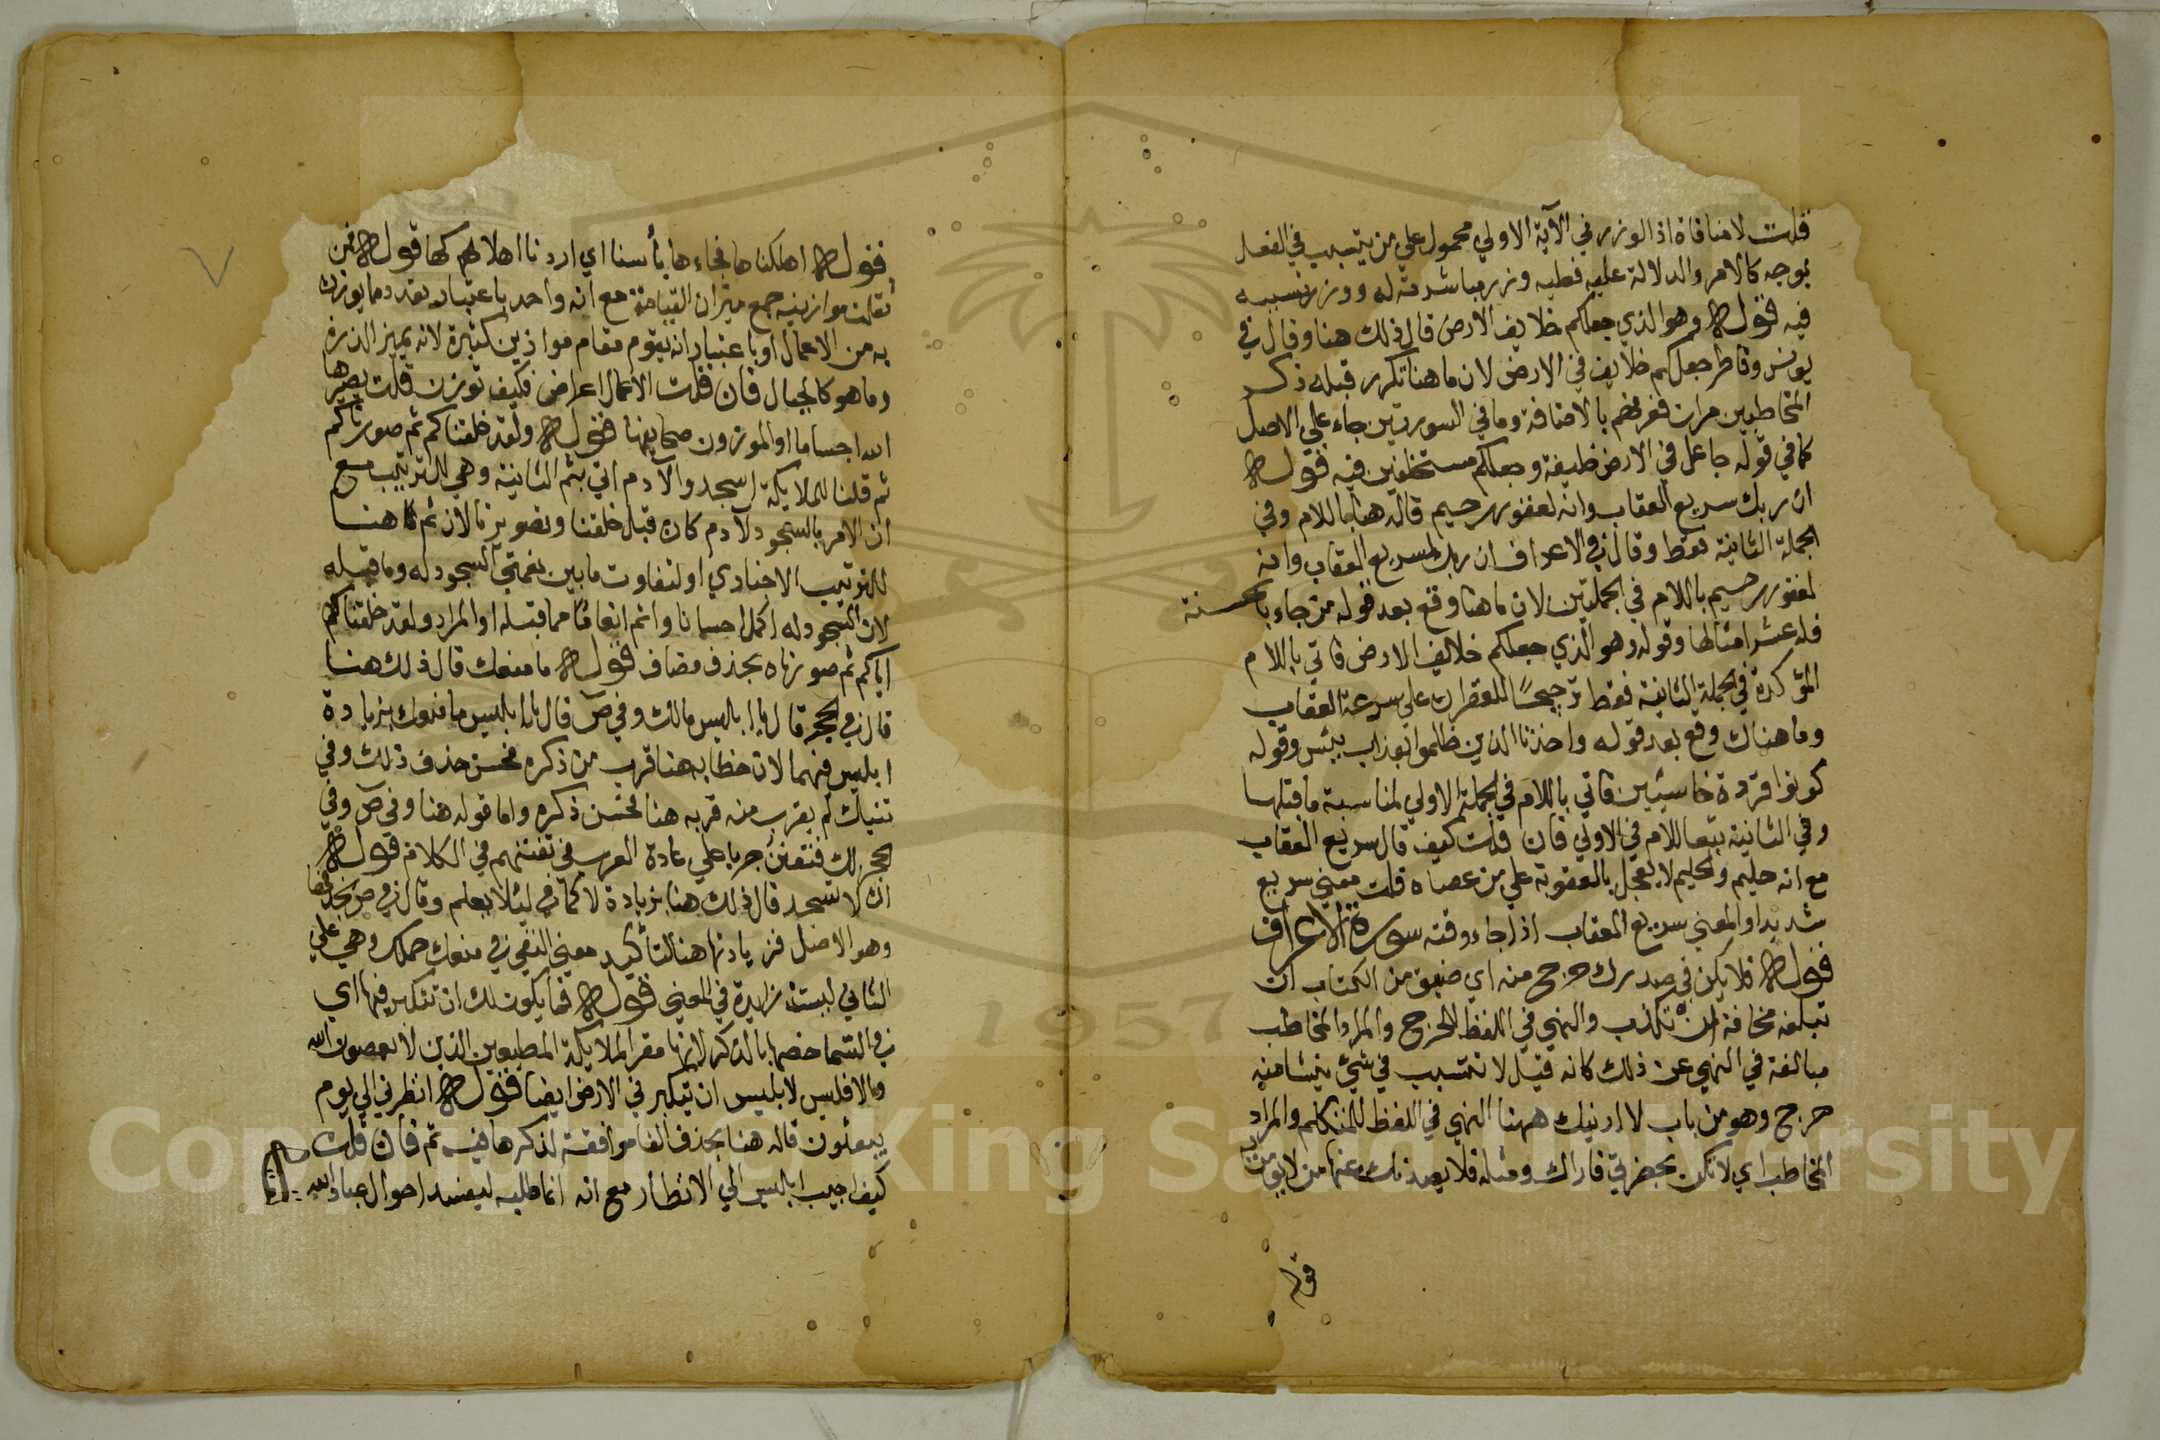 قلت لا منافاة اذ الوزر في الآية الاولي محمول علي من يتسبب في الفعل
بوجه كالامر والدلالة عليه فعليه وزر مباشرته له ووزر تسببه
فيه قوله وهو الذي جعلكم خلايف الارض قال ذلك هنا وقال في
يونس وفاطر جعلكم خلايف في الارض لان ما هنا تكرر قبله ذكر
المخاطبين مرات فعرفهم بالاضافة وما في السورتين جاء علي الاصل
كما في قوله جاعل في الارض خليفة وجعلكم مستخلفين فيه قوله
ان ربك سريع العقاب وانه لغفور رحيم قاله هنا باللام وفي
الجملة الثانية فقط وقال في الاعراف ان ربك لسريع العقاب وانه
لغفور رحيم باللام في الجملتين لان ما هنا وقع بعد قوله من جاء بالحسنة
فله عشر امثالها وقوله وهو الذي جعلكم خلايف الارض فاتي باللام
المؤكدة في الجملة الثانية فقط ترجيحًا للغفران علي سرعة العقاب
وما هناك وقع بعد قوله واخذنا الذين ظلموا بعذاب بيئس وقوله
كونوا قردة خاسئين فاتي باللام في الجملة الاولي لمناسبة ما قبلها
وفي الثانية تبعا للام في الاولي فان قلت كيف قال سريع العقاب
مع انه حليم والحليم لا يعجل بالعقوبة علي من عصاه قلت معني سريع
شديد او المعني سريع العقاب اذا جاء وقته سورة الاعراف
قوله فلا يكن في صدرك حرج منه اي ضيق من الكتاب ان
تبلغه مخافة ان تكذب والنهي في اللفظ للحرج والمراد المخاطب
مبالغة في النهي عن ذلك كانه قيل لا تتسبب في شئ ينشا منه
حرج وهو من باب لا ارنيك ههنا النهي في اللفظ للمتكلم والمراد
المخاطب اي لا تكن بحضرتي فاراك ومثله فلا يصدنك عنها من لا يومن بها
قوله
فقوله اهلكناها فجاءها بأسنا اي اردنا اهلاكها قوله فمن
ثقلت موازينه جمع ميزان القيامة مع انه واحد باعتبار تعدد ما يوزن
به من الاعمال او باعتبار انه يقوم مقام موازين كثيرة لانه يميز الذرة
وما هو كالجبال فان قلت الاعمال اعراض فكيف توزن قلت يصيرها
الله اجساما او الموزون صحايفها قوله ولقد خلقناكم ثم صورناكم
ثم قلنا للملايكة اسجدوا لآدم اتي بثم الثانية وهي للترتيب مع
ان الامر بالسجود لآدم كان قبل خلقنا وتصويرنا لان ثم هنا
للترتيب الاخباري او لتفاوت ما بين نعمتي السجود له وما قبله
لان السجود له اكمل احسانا واتم انعاما مما قبله او المراد ولقد خلقناكم
اباكم ثم صورناه بحذف مضاف قوله ما منعك قال ذلك هنا
قال في الحجر قال يا ابليس مالك وفي ص قال يا ابليس ما منعك بزيادة
ابليس فيهما لان خطابه هنا قرب من ذكره فحسن حذف ذلك وفي
تنيك لم يقرب منه قربه هنا فحسن ذكره واما قوله هنا وفي ص وفي
الحجر لك فتفنن جريا علي عادة العرب في تفننهم في الكلام قوله
ان لا تسجد قال ذلك هنا بزيادة لا كما في ليلا يعلم وقال في ص بحذفها
وهو الاصل فزيادتها هنا لتأكيد معني النفي في منعك حملك وهي علي
الثاني ليست زايدة في المعني قوله فما يكون لك ان تتكبر فيها اي
في السما خصها بالذكر لانها مقر الملايكة المطيعين الذين لا يعصون الله
والا فليس لابليس ان يتكبر في الارض ايضا قوله انظرني الي يوم
يبعثون قاله هنا بحذف الفا موافقة لذكرها فيه ثم فان قلت
كيف اجيب ابليس الي الانظار مع انه انما طلبه ليفسد احوال عباد الله
Copyright © King Saud University
1957